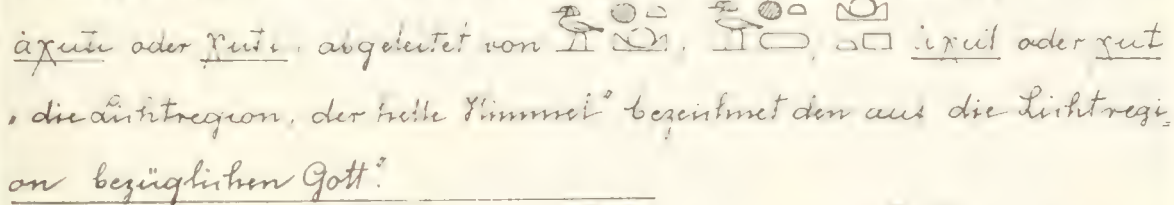 áχuti oder χuti, abgeleitet von 𓅜𓐍𓏏𓈌, 𓅜𓐍𓏏𓉐, 𓈌𓏏𓉐 áχut oder χut
„die Lichtregion, der helle Himmel“ bezeichnet den auf die Lichtregi-
on bezüglichen Gott“.